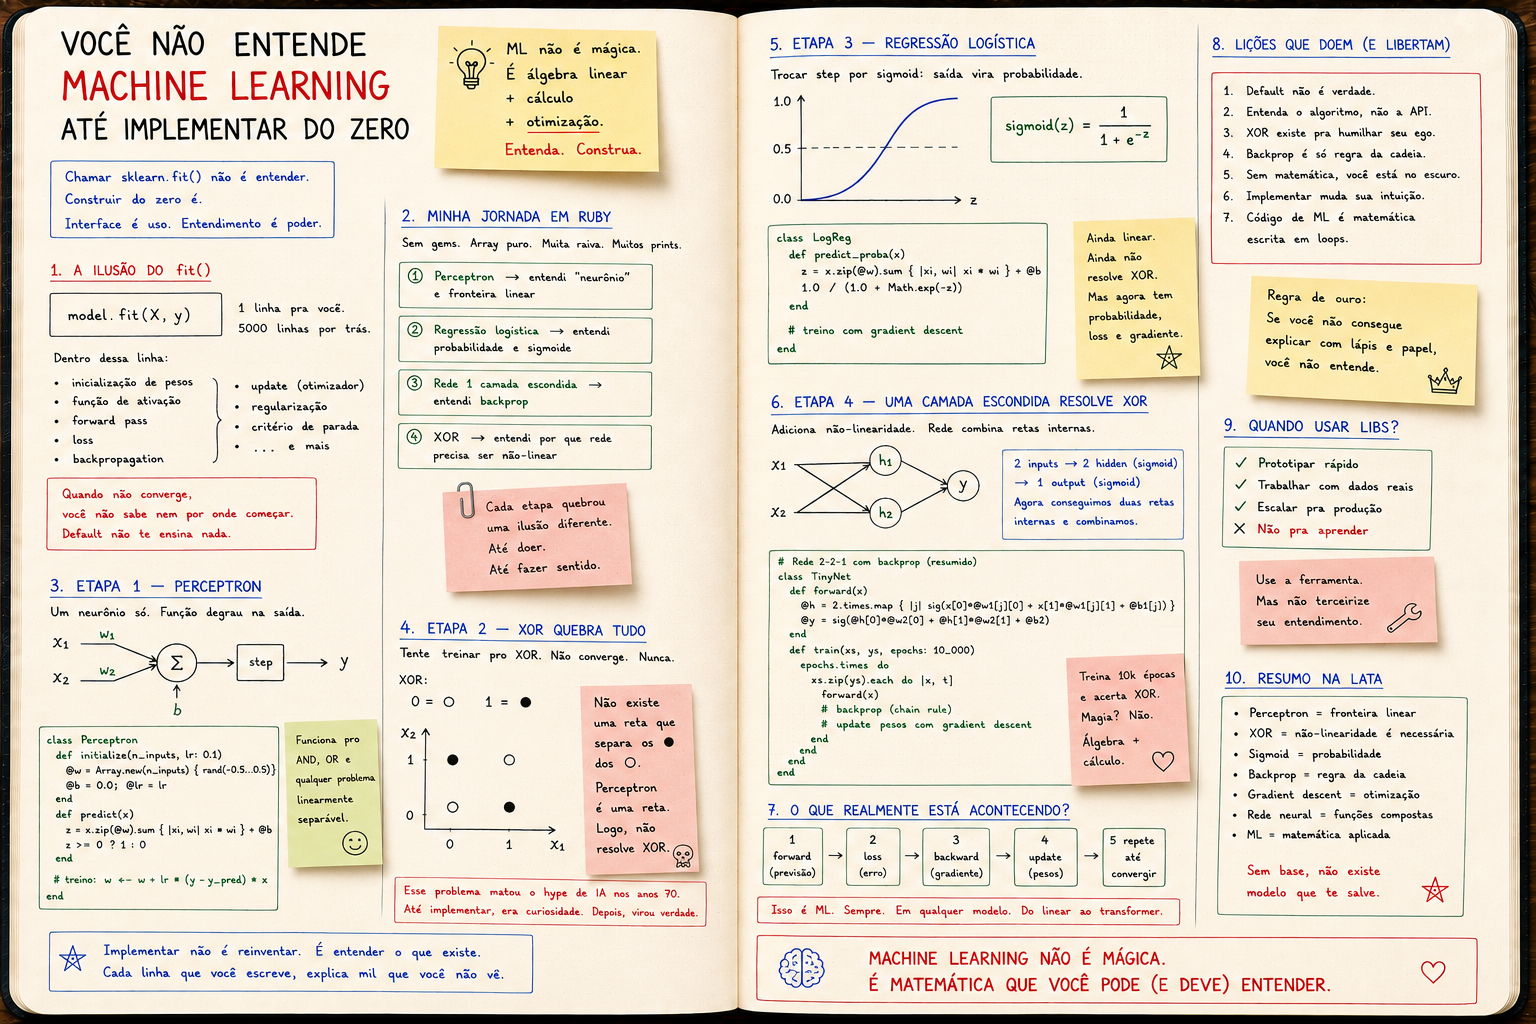 VOCÊ NÃO ENTENDE
MACHINE LEARNING
ATÉ IMPLEMENTAR DO ZERO
Chamar sklearn.fit() não é entender.
Construir do zero é.
Interface é uso. Entendimento é poder.
ML não é mágica.
É álgebra linear
+ cálculo
+ otimização.
Entenda. Construa.
1. A ILUSÃO DO fit()
model.fit(X, y)
1 linha pra você.
5000 linhas por trás.
Dentro dessa linha:
• inicialização de pesos
• função de ativação
• forward pass
• loss
• backpropagation
• update (otimizador)
• regularização
• critério de parada
• ... e mais
Quando não converge,
você não sabe nem por onde começar.
Default não te ensina nada.
2. MINHA JORNADA EM RUBY
Sem gems. Array puro. Muita raiva. Muitos prints.
1 Perceptron → entendi "neurônio"
e fronteira linear
2 Regressão logística → entendi
probabilidade e sigmoide
3 Rede 1 camada escondida →
entendi backprop
4 XOR → entendi por que rede
precisa ser não-linear
Cada etapa quebrou
uma ilusão diferente.
Até doer.
Até fazer sentido.
3. ETAPA 1 — PERCEPTRON
Um neurônio só. Função degrau na saída.
X1
W1
X2
W2
Σ
b
step
y
class Perceptron
def initialize(n_inputs, lr: 0.1)
@w = Array.new(n_inputs) { rand(-0.5...0.5)}
@b = 0.0; @lr = lr
end
def predict(x)
z = x.zip(@w).sum { |xi, wi| xi * wi } + @b
z >= 0 ? 1 : 0
end
# treino: w <- w + lr * (y - y_pred) * x
end
Funciona pro
AND, OR e
qualquer problema
linearmente
separável.
4. ETAPA 2 — XOR QUEBRA TUDO
Tente treinar pro XOR. Não converge. Nunca.
XOR:
0 = ○ 1 = ●
X2
1
0
0 1 X1
Não existe
uma reta que
separa os ●
dos ○.
Perceptron
é uma reta.
Logo, não
resolve XOR.
Esse problema matou o hype de IA nos anos 70.
Até implementar, era curiosidade. Depois, virou verdade.
Implementar não é reinventar. É entender o que existe.
Cada linha que você escreve, explica mil que você não vê.
5. ETAPA 3 — REGRESSÃO LOGÍSTICA
Trocar step por sigmoid: saída vira probabilidade.
1.0
0.5
0.0
z
sigmoid(z) = 1 / 1 + e^-z
class LogReg
def predict_proba(x)
z = x.zip(@w).sum { |xi, wi| xi * wi } + @b
1.0 / (1.0 + Math.exp(-z))
end
# treino com gradient descent
end
Ainda linear.
Ainda não
resolve XOR.
Mas agora tem
probabilidade,
loss e gradiente.
6. ETAPA 4 — UMA CAMADA ESCONDIDA RESOLVE XOR
Adiciona não-linearidade. Rede combina retas internas.
X1
X2
h1
h2
y
2 inputs → 2 hidden (sigmoid)
→ 1 output (sigmoid)
Agora conseguimos duas retas
internas e combinamos.
# Rede 2-2-1 com backprop (resumido)
class TinyNet
def forward(x)
@h = 2.times.map { |j| sig(x[0]*@w1[j][0] + x[1]*@w1[j][1] + @b1[j]) }
@y = sig(@h[0]*@w2[0] + @h[1]*@w2[1] + @b2)
end
def train(xs, ys, epochs: 10_000)
epochs.times do
xs.zip(ys).each do |x, t]
forward(x)
# backprop (chain rule)
# update pesos com gradient descent
end
end
end
end
Treina 10k épocas
e acerta XOR.
Magia? Não.
Álgebra +
cálculo.
7. O QUE REALMENTE ESTÁ ACONTECENDO?
1
forward
(previsão)
→
2
loss
(erro)
→
3
backward
(gradiente)
→
4
update
(pesos)
→
5 repete
até
convergir
Isso é ML. Sempre. Em qualquer modelo. Do linear ao transformer.
8. LIÇÕES QUE DOEM (E LIBERTAM)
1. Default não é verdade.
2. Entenda o algoritmo, não a API.
3. XOR existe pra humilhar seu ego.
4. Backprop é só regra da cadeia.
5. Sem matemática, você está no escuro.
6. Implementar muda sua intuição.
7. Código de ML é matemática
escrita em loops.
Regra de ouro:
Se você não consegue
explicar com lápis e papel,
você não entende.
9. QUANDO USAR LIBS?
✓ Prototipar rápido
✓ Trabalhar com dados reais
✓ Escalar pra produção
✗ Não pra aprender
Use a ferramenta.
Mas não terceirize
seu entendimento.
10. RESUMO NA LATA
• Perceptron = fronteira linear
• XOR = não-linearidade é necessária
• Sigmoid = probabilidade
• Backprop = regra da cadeia
• Gradient descent = otimização
• Rede neural = funções compostas
• ML = matemática aplicada
Sem base, não existe
modelo que te salve.
MACHINE LEARNING NÃO É MÁGICA.
É MATEMÁTICA QUE VOCÊ PODE (E DEVE) ENTENDER.